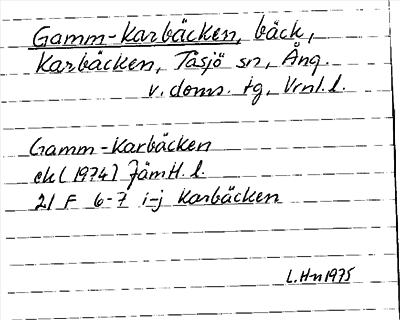 Gamm-Karbäcken, bäck,
Karbäcken, Tåsjö sn, Ång.
v. doms. tg, Vrnl. l.
Gamm-Karbäcken
ek (1974) Jämtl. l.
21 F 6-7 i-j Karbäcken
L.H-n 1975